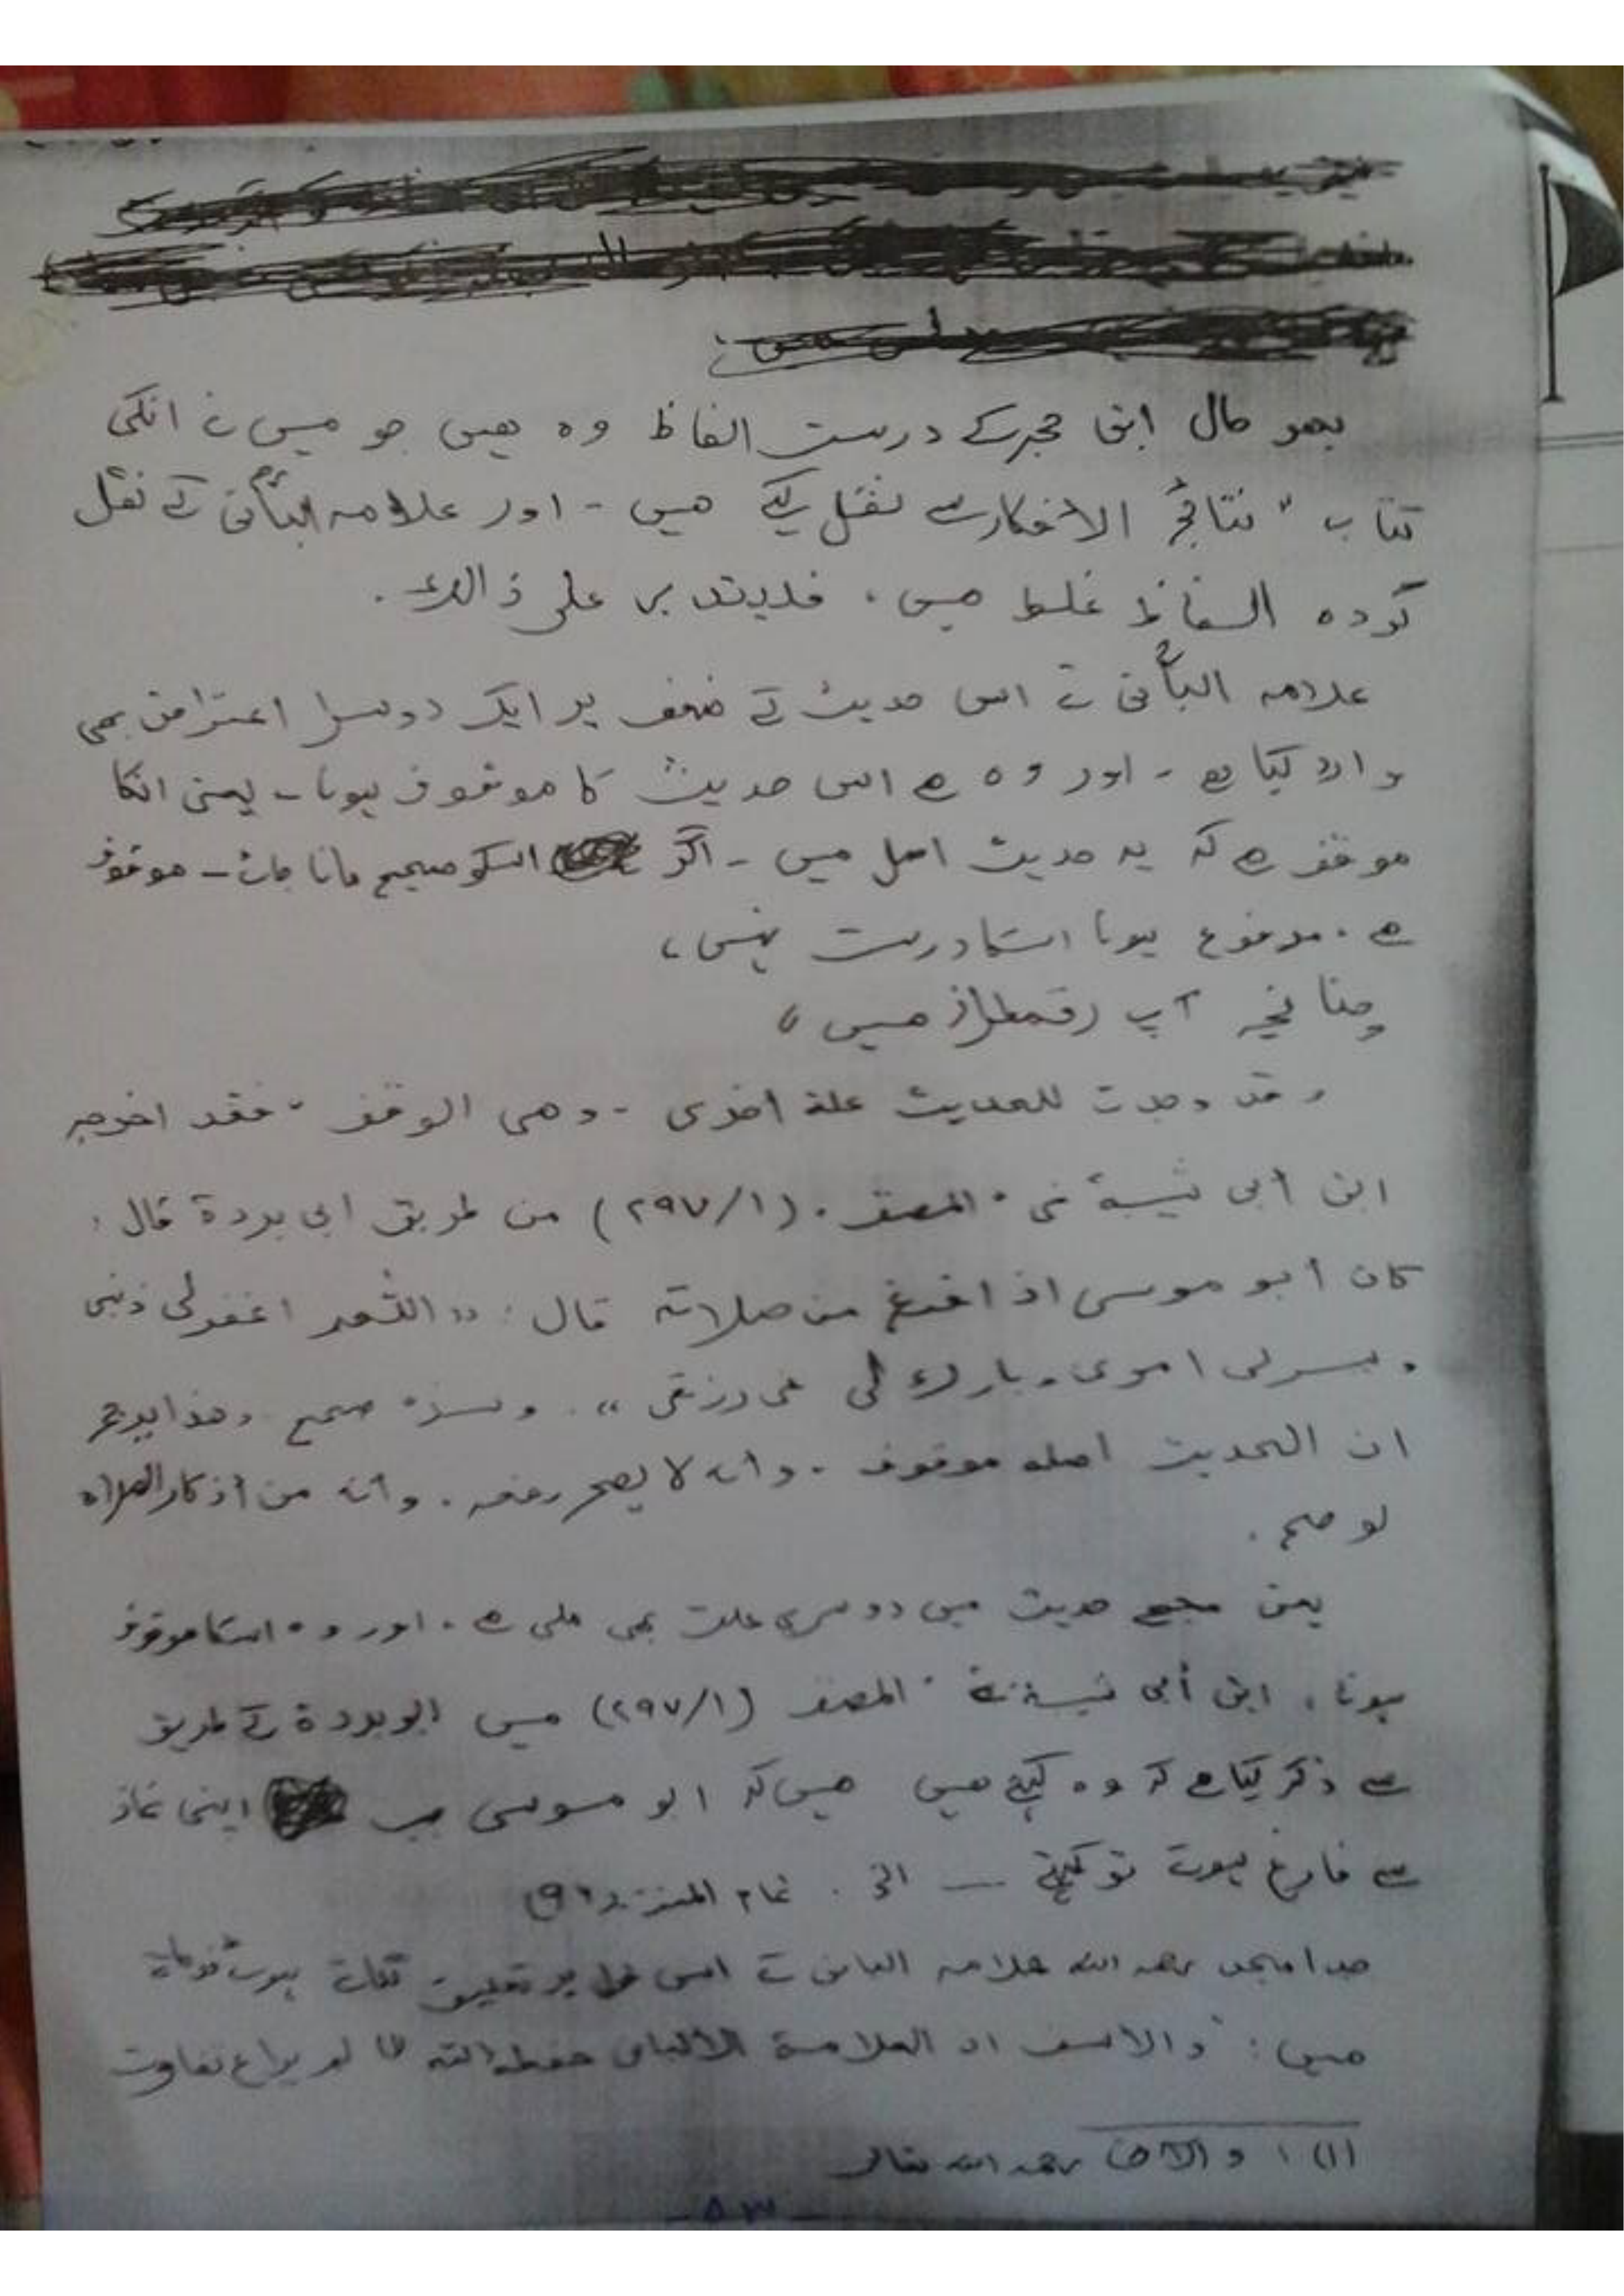 بھر حال ابن حجر کے درست الفاظ وہ ھیں جو میں نے انکی
کتاب " نتائج الافکار سے نقل کیے ھیں - اور علامہ البأنی کے نقل
کردہ الفاظ غلط ھیں ، فلیتدبر علی ذالک .
علامہ البأنی نے اس حدیث کے ضعف پر ایک دوسرا اعتراض بھی
وارد کیا ہے - اور وہ ہے اس حدیث کا موقوف ہونا - یعنی انکا
موقف ہے کہ یہ حدیث اصل میں - اگر اسکو صحیح مانا جائے - موقوف
ہے . مرفوع ہونا اسکا درست نہیں ،
چنانچہ آپ رقمطراز ھیں ،
وقد وجدت للحدیث علة اخری - وھی الوقف ، فقد اخرجہ
ابن أبی شیبة فی " المصنف . (۱/۲۹۷) من طریق ابی بردة قال :
کان أبو موسی اذا فرغ من صلاتہ قال : " اللھم اغفرلی ذنبی
ویسرلی امری وبارک لی فی رزقی " . وسندہ صحیح وھذا یرجح
ان الحدیث اصلہ موقوف . وانہ لا یصح رفعہ . وانہ من أذکار الصلاہ
لو صح .
یعنی مجھے حدیث میں دوسری علت بھی ملی ہے . اور وہ اسکا موقوف
ہونا ، ابن أبی شیبة نے " المصنف (۱/۲۹۷) میں ابو بردة کے طریق
سے ذکر کیا ہے کہ وہ کہتے ھیں ھیں کہ ابو موسی جب اپنی نماز
سے فارغ ہوتے تو کہتے — الخ . تمام المنة
جد امجد رحمہ اللہ علامہ البانی کے اس پر تعلیق ہوئے فرماتے
ھیں : " والاسف ان العلامة الألبانی حفظہ اللہ لم یراع تفاوت
(۱) ؛ رحمہ اللہ تعالی
- ۵۳ -